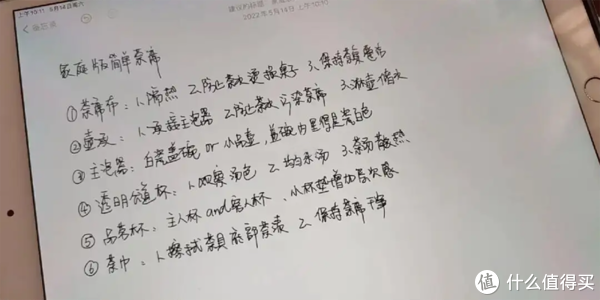 上午10:11 5月14日周六
2022年5月14日 上午10:11
家庭版简单茶席
①茶席布：1.隔热 2.防止茶水烫损桌子 3.保持茶桌
②壶承：1.承接主泡器 2.防止茶水污染茶席 3.淋壶储水
③主泡器：白瓷盖碗 or 小品壶，盖碗内里得是瓷白色
④透明公道杯：1.观察汤色 2.均匀茶汤 3.茶汤散热
⑤品茗杯：主人杯 and 客人杯、小杯垫增加层次感
⑥茶巾：1.擦拭茶具底部茶渍 2.保持茶席干净
值 什么值得买